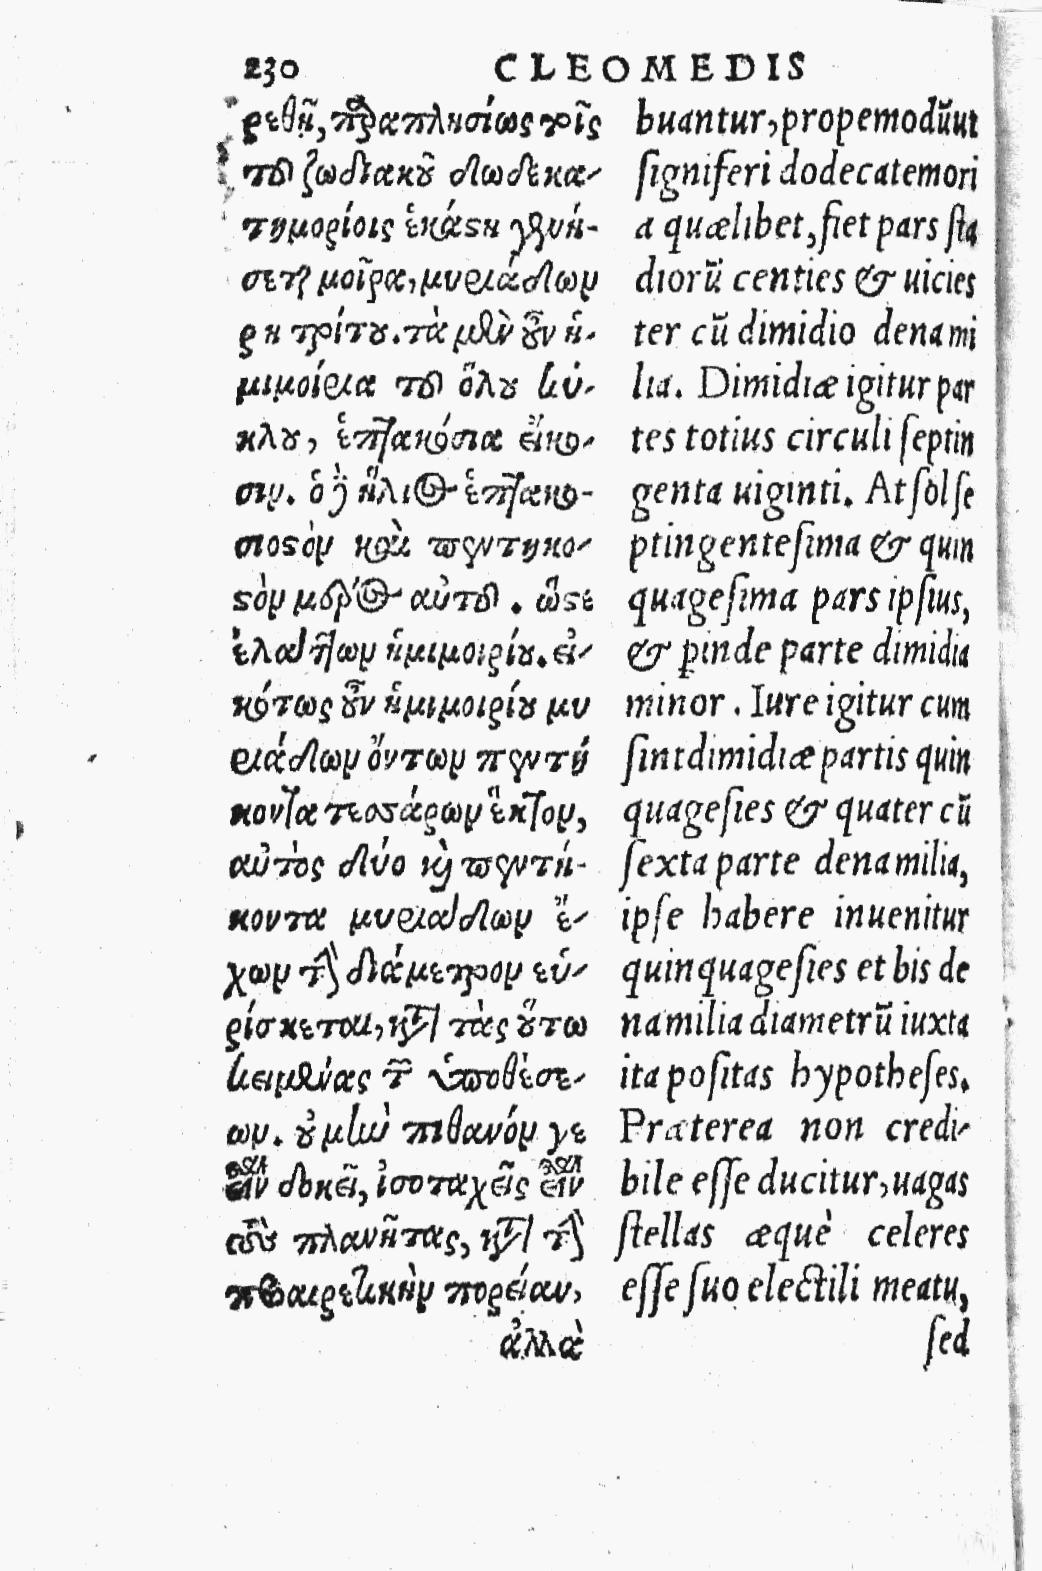 230 CLEOMEDIS
ρεθῇ, παραπλησίως τοῖς
τοῦ ζωδιακοῦ δωδεκα-
τημορίοις ἑκάστη γενή-
σεται μοῖρα, μυριάδων
ρκ τρίτου. τὰ μὲν οὖν ἡ-
μιμοίρια τοῦ ὅλου κύ-
κλου, ἑπτακόσια εἴκο-
σιν. ὁ δὲ ἥλιος ἑπτακο-
σιοστὸν καὶ πεντηκο-
στὸν μέρος αὐτοῦ. ὥστε
ἐλάττων ἡμιμοιρίου. εἰ-
κότως οὖν ἡμιμοιρίου μυ
ριάδων ὄντων πεντή
κοντα τεσσάρων ἕκτον,
αὐτὸς δύο καὶ πεντή-
κοντα μυριάδων ἔ-
χων τὴν διάμετρον εὑ-
ρίσκεται, κατὰ τὰς οὕτω
κειμένας τῶν ὑποθέσε-
ων. οὐ μὴν πιθανόν γε
εἶναι δοκεῖ, ἰσοταχεῖς εἶναι
τοὺς πλανῆτας, κατὰ τὴν
προαιρετικὴν πορείαν,
ἀλλὰ
buantur, propemodũut
ſigniferi dodecatemori
a quælibet, fiet pars ſta
diorũ centies & uicies
ter cũ dimidio dena mi
lia. Dimidiæ igitur par
tes totius circuli ſeptin
genta uiginti. At ſol ſe
ptingenteſima & quin
quageſima pars ipſius,
& ꝓinde parte dimidia
minor. Iure igitur cum
ſint dimidiæ partis quin
quageſies & quater cũ
ſexta parte dena milia,
ipſe habere inuenitur
quinquageſies et bis de
na milia diametrũ iuxta
ita poſitas hypotheſes.
Præterea non credi-
bile eſſe ducitur, uagas
ſtellas æquè celeres
eſſe ſuo electili meatu,
ſed